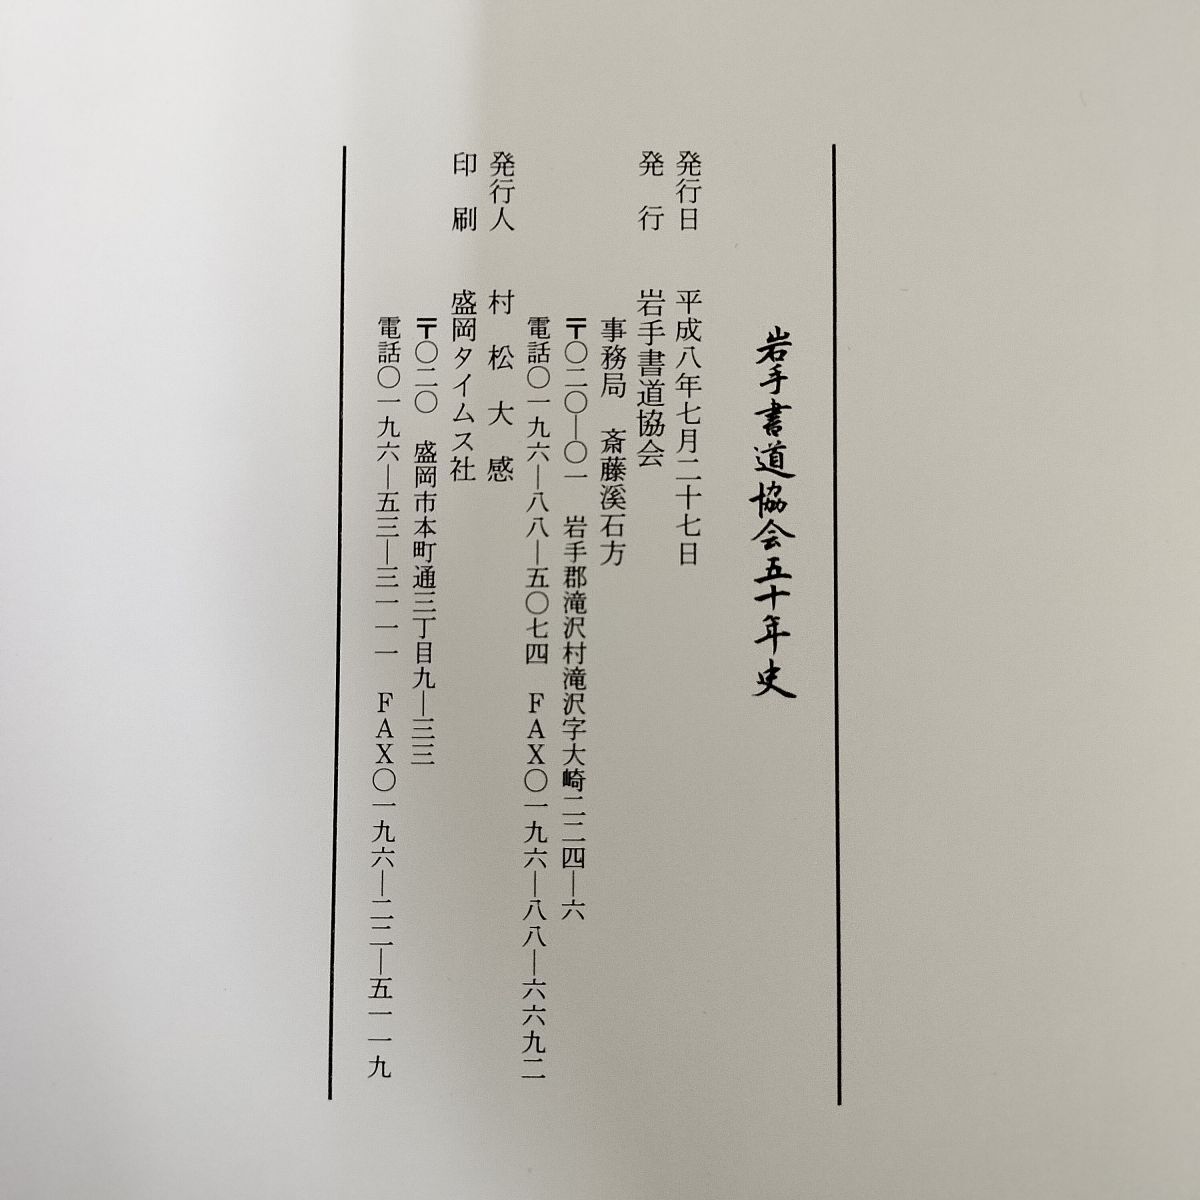 岩手書道協会五十年史
発行日　平成八年七月二十七日
発　行　岩手書道協会
事務局　斎藤溪石方
〒〇二〇―〇一　岩手郡滝沢村滝沢字大崎二二四―六
電話〇一九六―八八―五〇七四　ＦＡＸ〇一九六―八八―六六九二
発行人　村　松　大　感
印　刷　盛岡タイムス社
〒〇二〇　盛岡市本町通三丁目九―三三
電話〇一九六―五三―三一一一　ＦＡＸ〇一九六―二二―五一一九